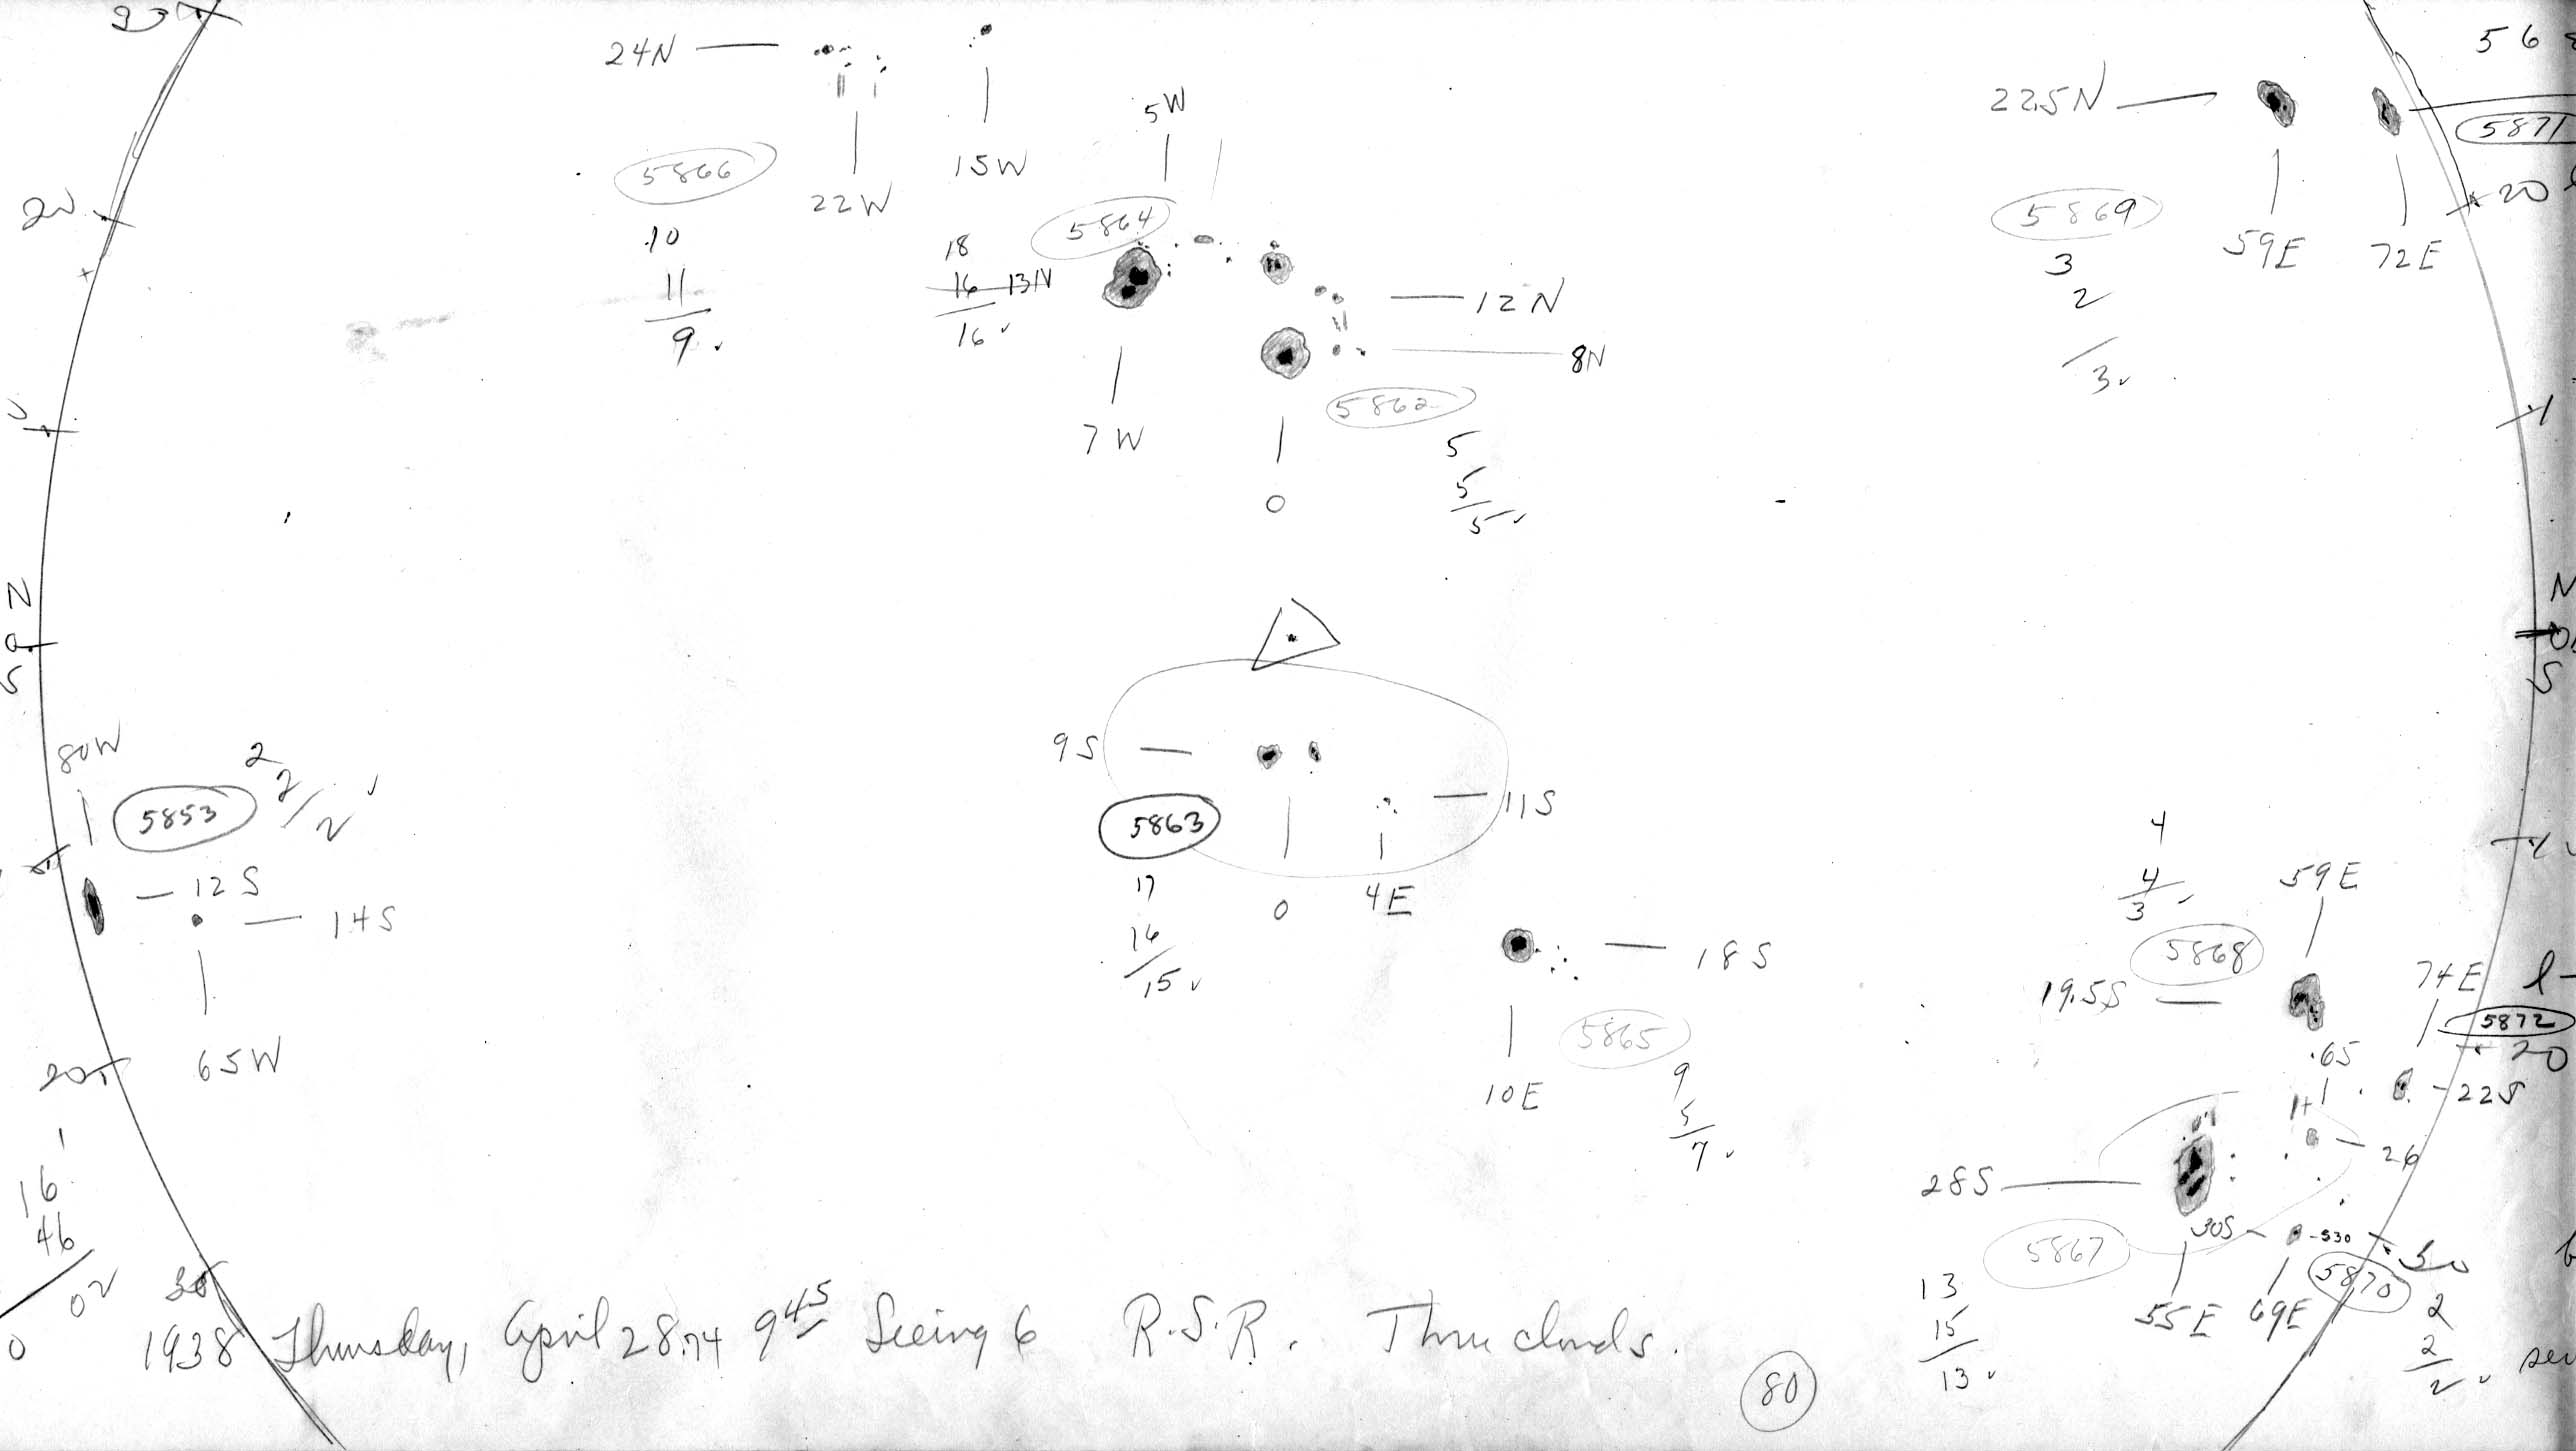 24N
22W
15W
5866
10
11
9
5W
5864
18
16 13N
16
7W
12N
8N
5862
5
5
5
0
22.5N
59E
72E
5871
5869
3
2
3
20
20
N
0
S
N
S
80W
5853
2
2
2
12S
14S
65W
20
9S
11S
5863
0
4E
17
16
15
18S
10E
5865
9
5
7
4
4
3
59E
5868
19.5S
74E
5872
20
65
22S
26
28S
30S
S30
5867
55E
69E
5870
13
15
13
2
2
2
30
16
46
02
0
1938 Thursday, April 28.74 9 45 Seeing 6 R.S.R. Thru clouds.
80